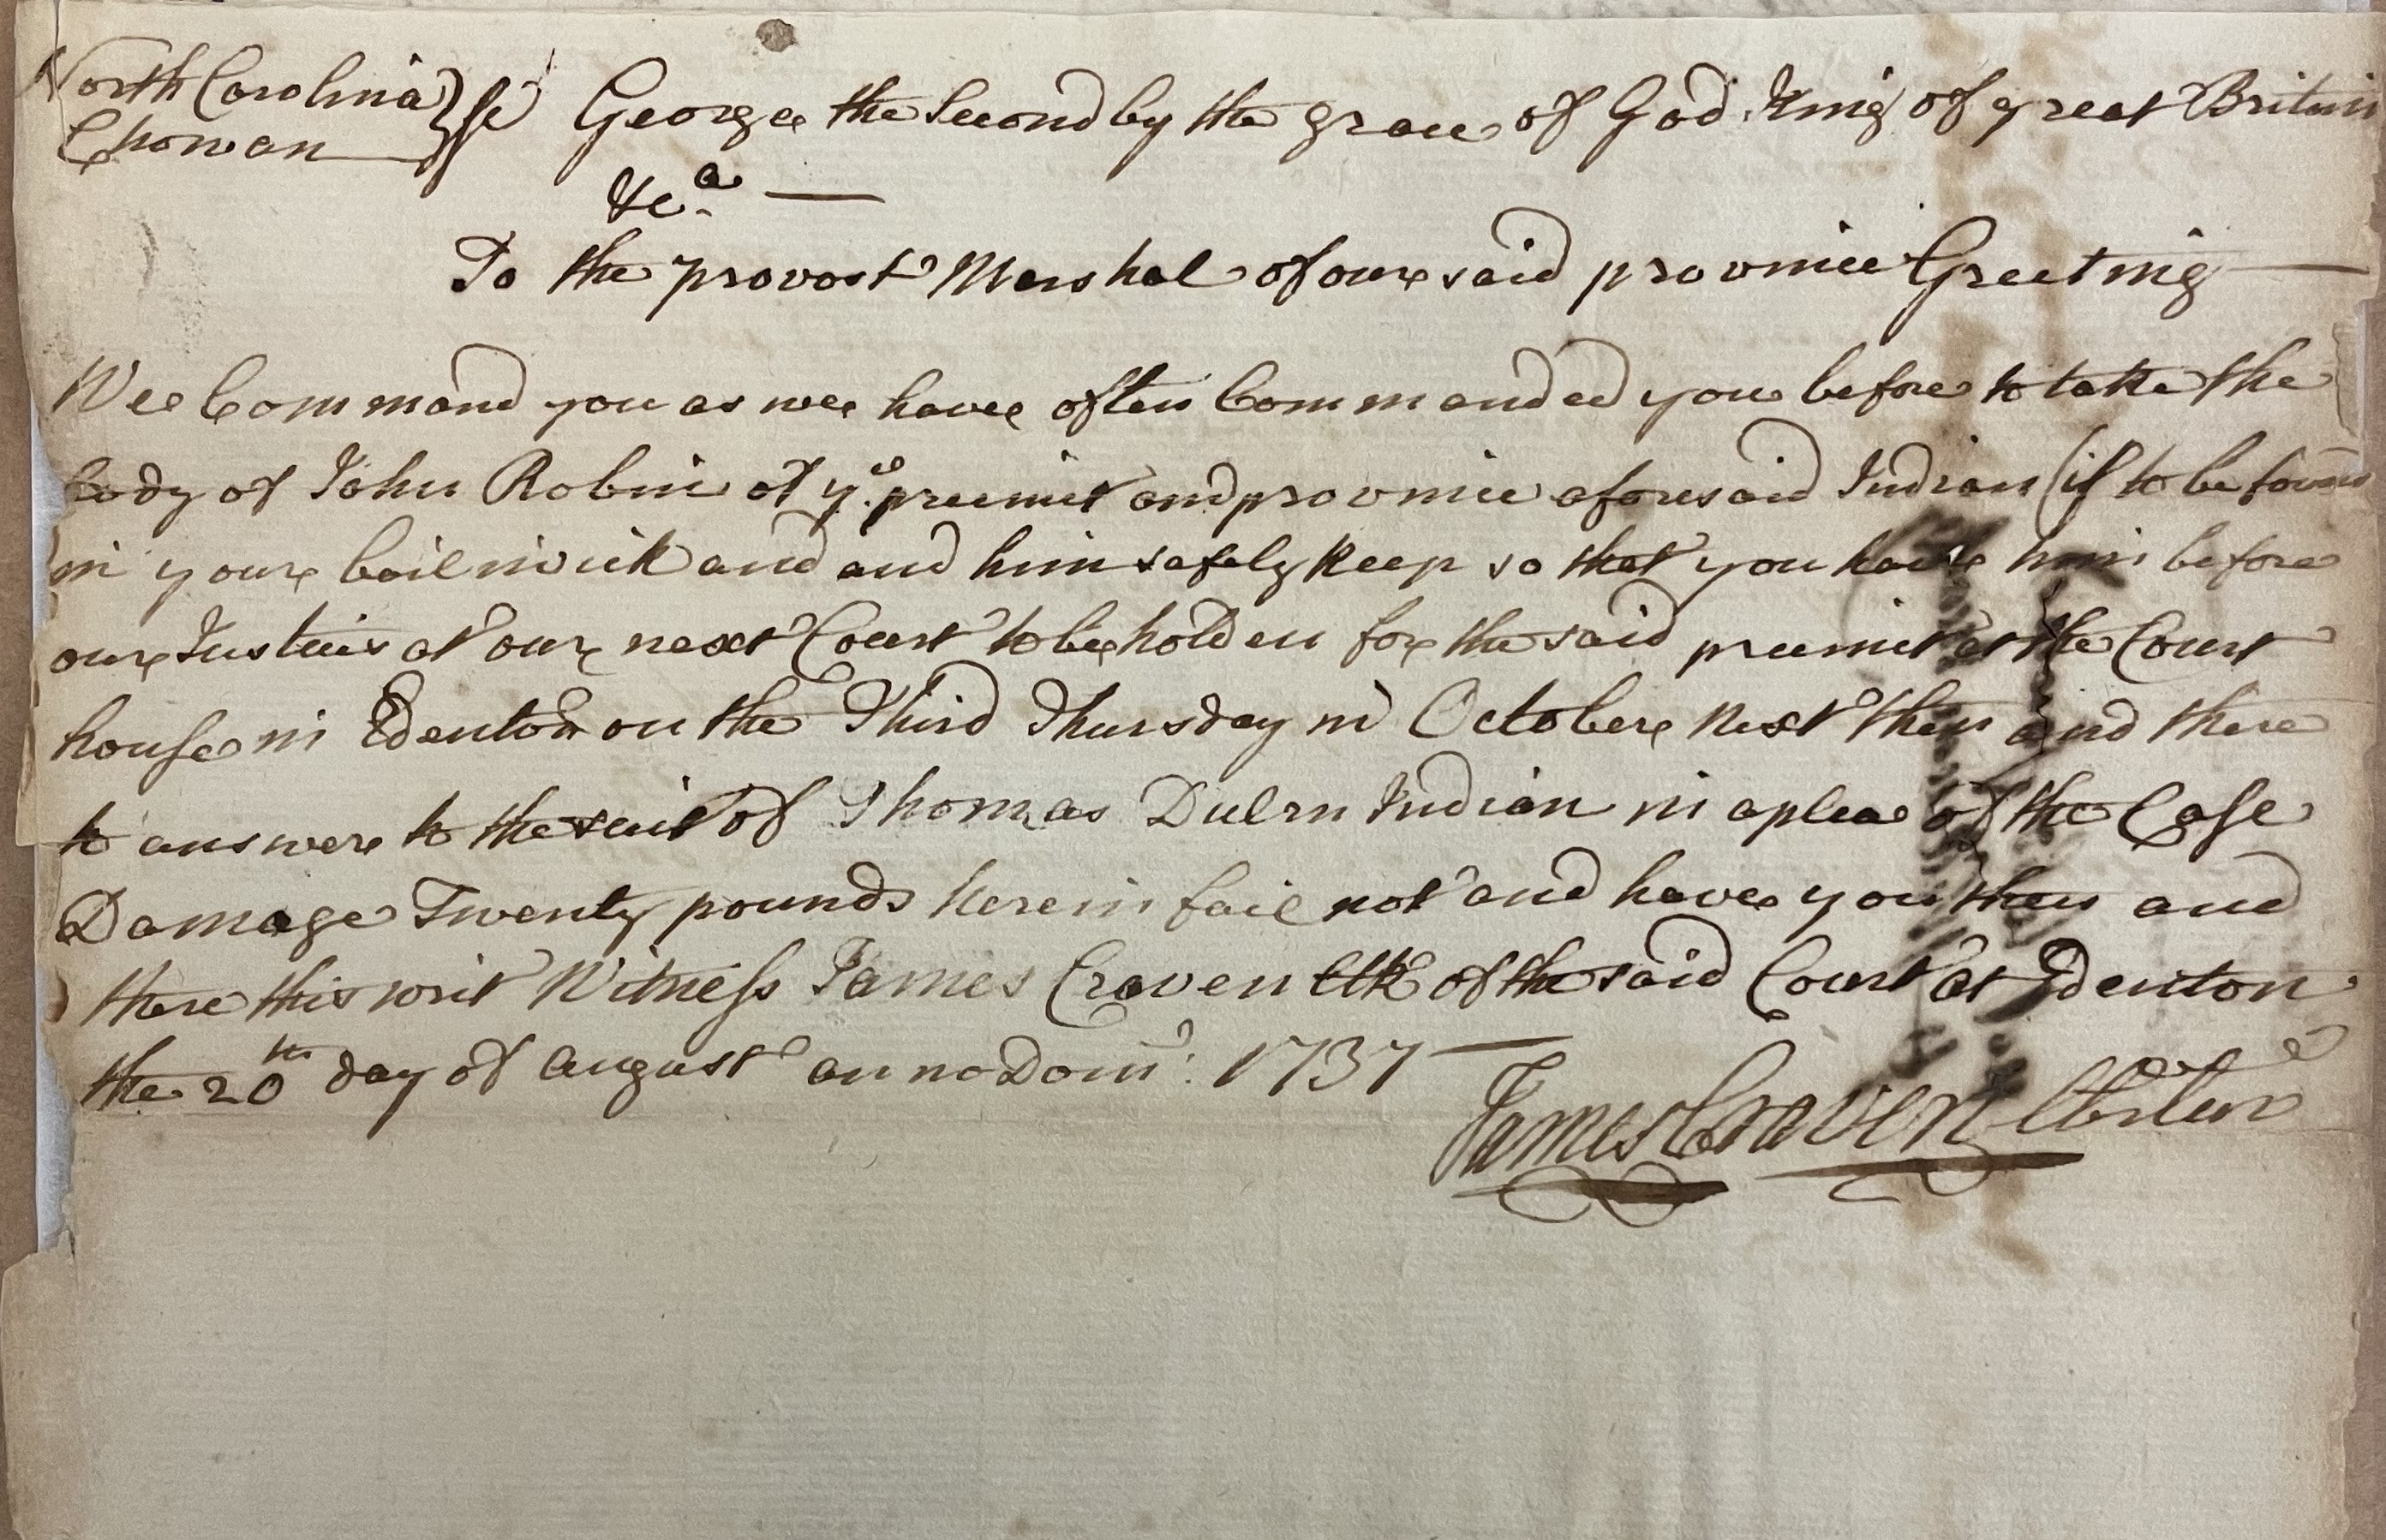 North Carolina } ss George the Second by the grace of God King of great Britain
Chowan
&c.a —
To the provost Marshal of oure said province Greeting —
Wee Command you as wee have often Commanded you before to take the
body of John Robin of ye. precinct and province aforesaid Indian (if to be found
in youre bailiwick and and him safely keep so that you have him before
oure Justices at oure next Court to bee holden for the said precinct at the Court
house in Edenton on the Third Thursday in October next then and there
to answere to the suit of Thomas Indian in a plea of the Case
Damage Twenty pounds herein fail not and have you then and
there this writ Witness James Craven Clk of the said Court at Edenton
the 20th day of august anno Dom: 1737 —
James Craven